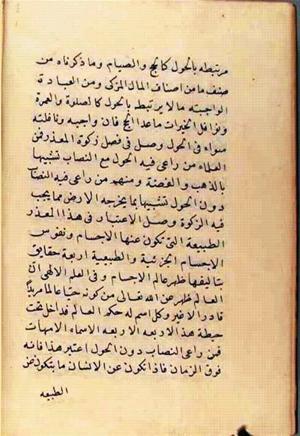 مرتبطه بالحول كالحج والصيام وما ذكرناه من
صنف ما من اصناف المال المزكى ومن العبادة
الواجبته ما لا يرتبط بالحول كالصلوة والعمرة
ونوافل الخيرات ما عدا الحج فان واجبه ونافلته
سواء في الحول وصل في فصل زكوة المعدن فمن
العلماء من راعى فيه الحول مع النصاب تشبيها
بالذهب والفضة ومنهم من راعى فيه النصاب
دون الحول تشبيها بما يخرجه الارض مما يجب
فيه الزكوة وصل الاعتبار في هذا المعدن
الطبيعة التي تكون عنها الاجسام ونفوس
الاجسام الجزئية والطبيعية اربعة حقايق
بتاليفها ظهر عالم الاجسام وفي العلم الالهي ان
العالم ظهر عن الله تعالى من كونه حيا عالما مريدا
قادرا لا غير وكل اسم له حكم في العالم فداخل تحت
حيطة هذه الاربعة الاسماء الامهات
فمن راعى النصاب دون الحول اعتبر هذا فانه
فوق الزمان فاذا تكون عن الانسان ما يتكون عن
الطبيعه